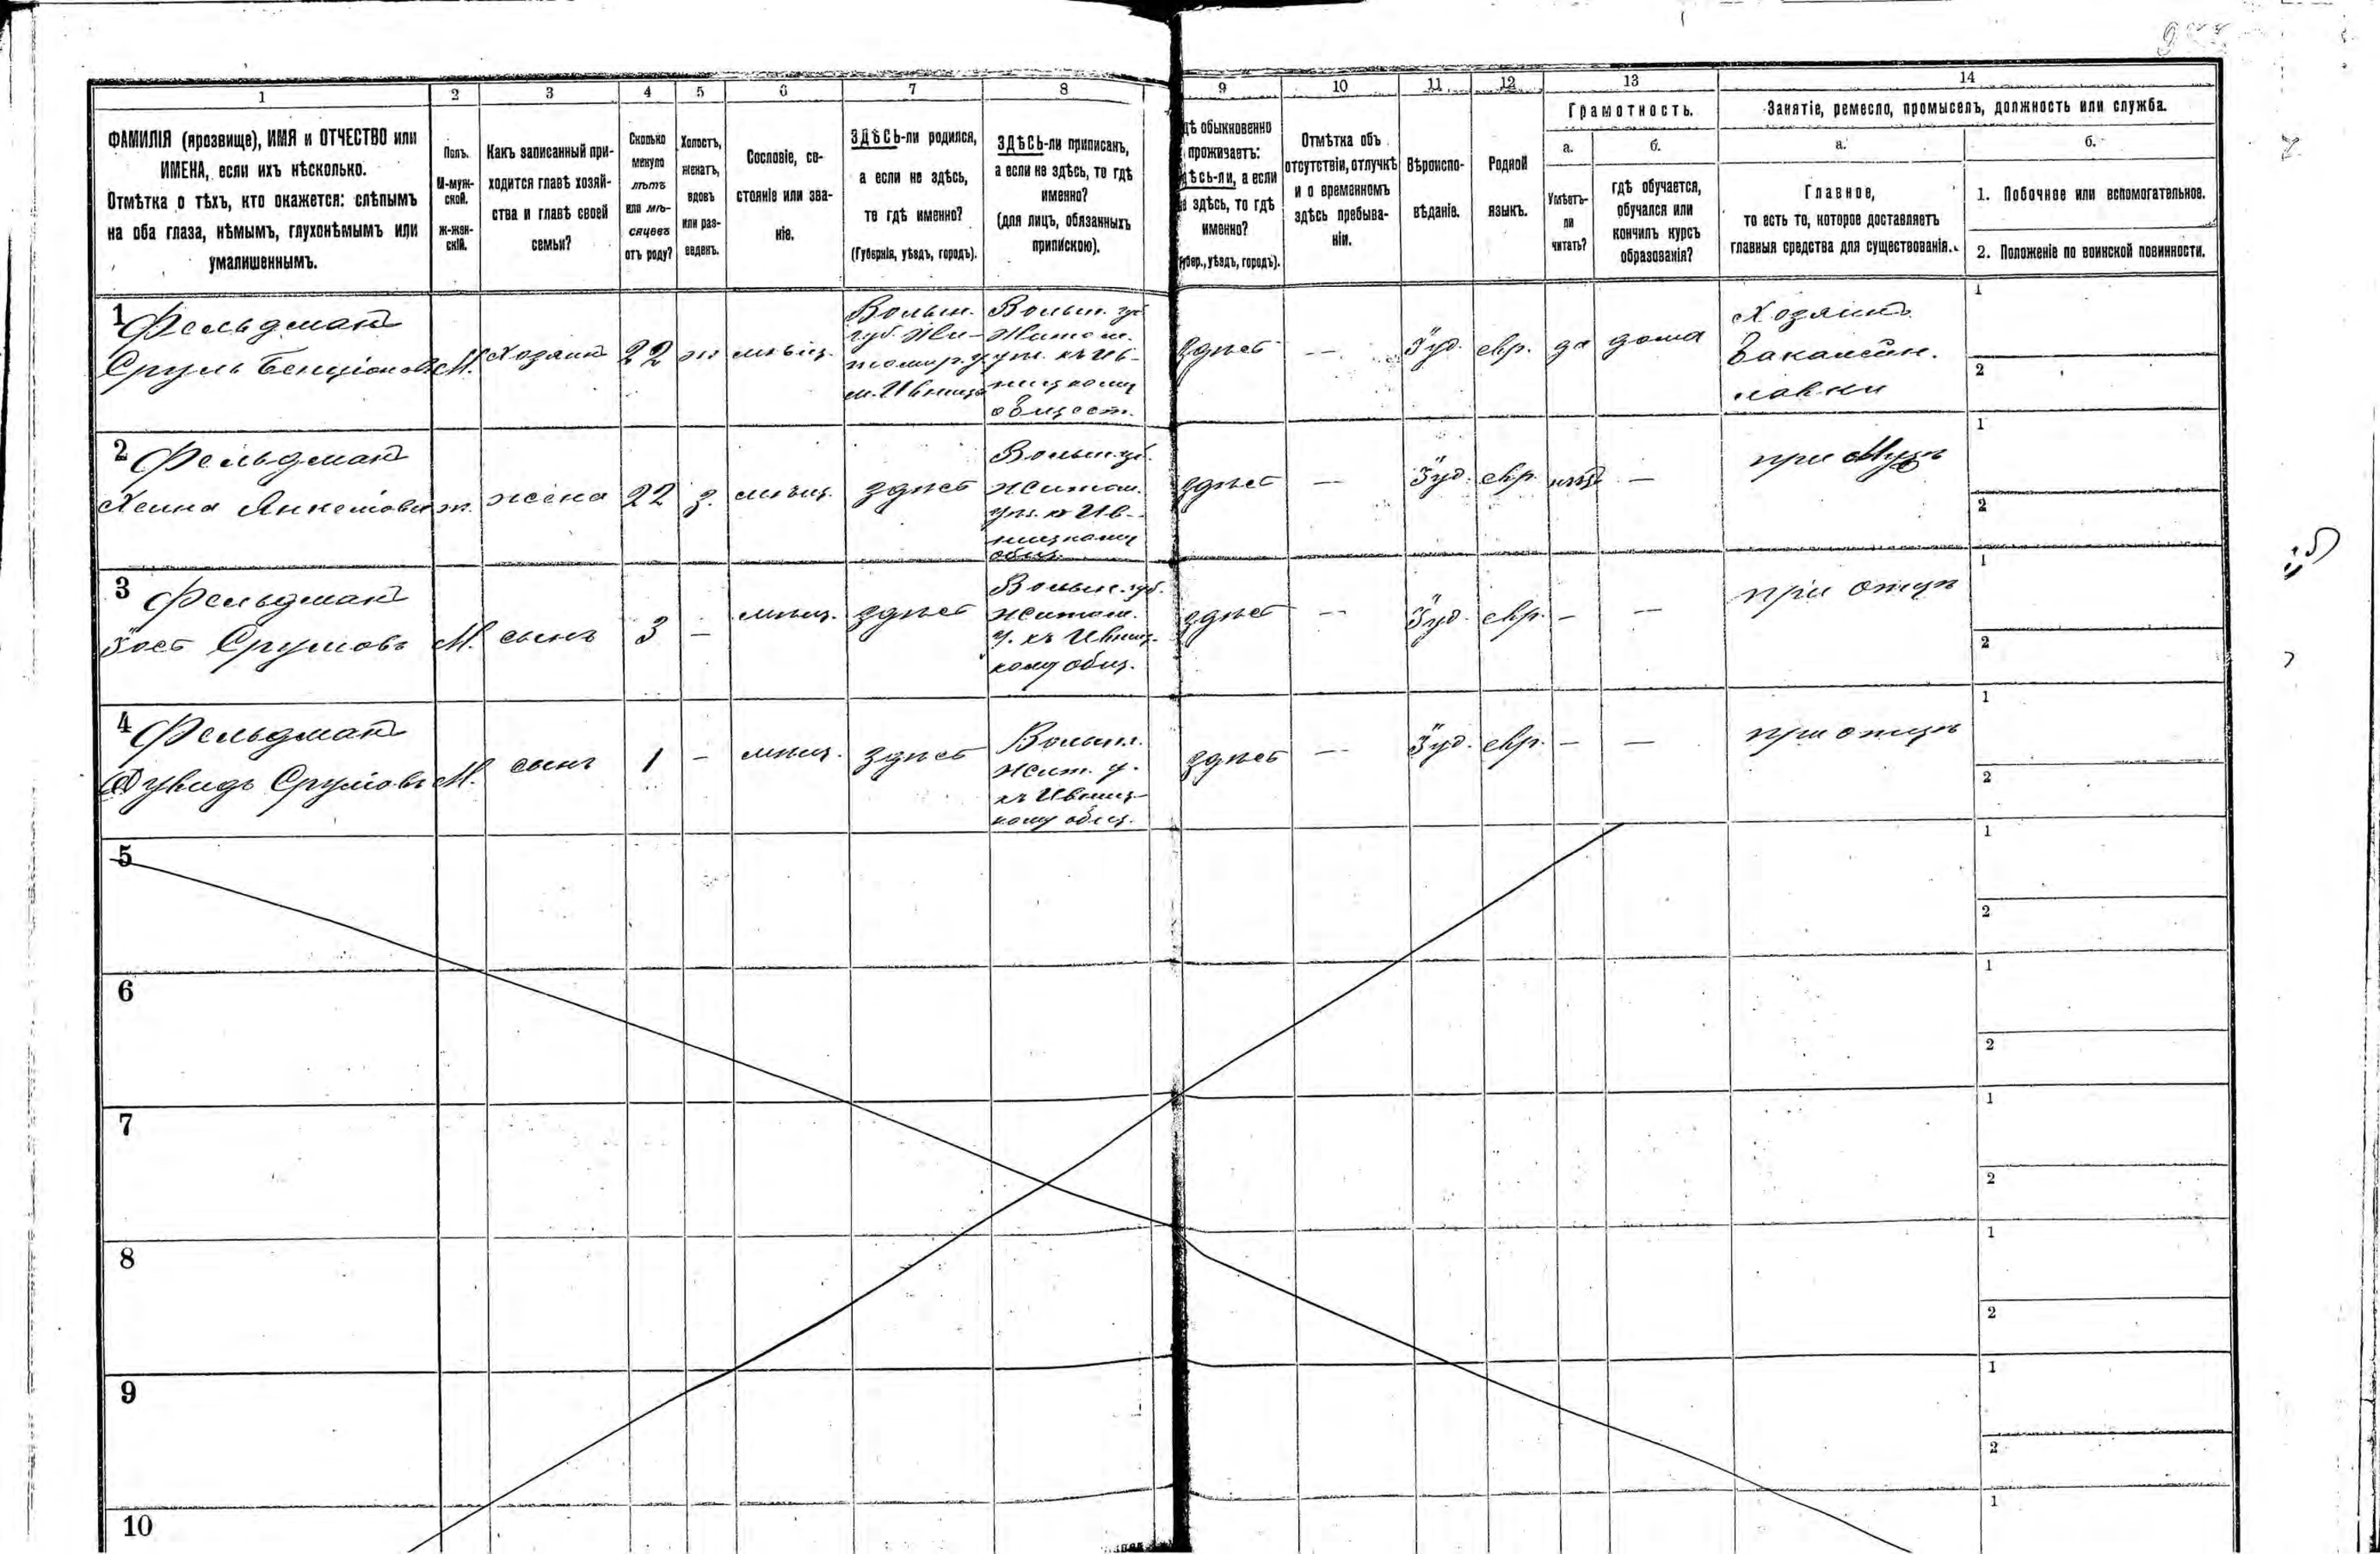 1
2
3
4
5
6
7
8
9
10
11
12
13
14
ФАМИЛІЯ (прозвище), ИМЯ и ОТЧЕСТВО или
ИМЕНА, если ихъ нѣсколько.
Отмѣтка о тѣхъ, кто окажется: слѣпымъ
на оба глаза, нѣмымъ, глухонѣмымъ или
умалишеннымъ.
Полъ.
М-муж-
ской.
ж-жен-
скій.
Какъ записанный при-
ходится главѣ хозяй-
ства и главѣ своей
семьи?
Сколько
минуло
лѣтъ
или мѣ-
сяцевъ
отъ роду?
Холостъ,
женатъ,
вдовъ
или раз-
веденъ.
Сословіе, со-
стояніе или зва-
ніе.
ЗДѢСЬ-ли родился,
а если не здѣсь,
то гдѣ именно?
(Губернія, уѣздъ, городъ).
ЗДѢСЬ-ли приписанъ,
а если не здѣсь, то гдѣ
именно?
(для лицъ, обязанныхъ
припискою).
дѣ обыкновенно
проживаетъ:
дѣсь-ли, а если
не здѣсь, то гдѣ
именно?
(Губер., уѣздъ, городъ).
Отмѣтка объ
отсутствіи, отлучкѣ
и о временномъ
здѣсь пребыва-
ніи.
Вѣроиспо-
вѣданіе.
Родной
языкъ.
Грамотность.
а.
Умѣетъ-
ли
читать?
б.
гдѣ обучается,
обучался или
кончилъ курсъ
образованія?
Занятіе, ремесло, промыселъ, должность или служба.
а.
Главное,
то есть то, которое доставляетъ
главныя средства для существованія.
б.
1. Побочное или вспомогательное.
2. Положеніе по воинской повинности.
1
Фельдманъ
Сруль Бенціоновъ
М.
Хозяинъ
22
ж
мѣщ.
Волын.
губ. Жи-
томир. у.
м. Ивница
Волын. губ.
Житом.
у. къ Ив-
ницкому
общест.
здѣсь
—
Іуд.
евр.
да
дома
Хозяинъ
бакалейн.
лавки
1
2
2
Фельдманъ
Хейна Янкелова
ж.
жена
22
з.
мѣщ.
здѣсь
Волын. губ.
Житом.
у. къ Ив-
ницкому
общ.
здѣсь
—
Іуд.
евр.
нѣтъ
—
при Мужѣ
1
2
3
Фельдманъ
Іось Срулевъ
М.
сынъ
3
—
мѣщ.
здѣсь
Волын. губ.
Житом.
у. къ Ивниц-
кому общ.
здѣсь
—
Іуд.
евр.
—
—
при отцѣ
1
2
4
Фельдманъ
Дувидъ Срулевъ
М.
сынъ
1
—
мѣщ.
здѣсь
Волын.
Жит. у.
къ Ивниц-
кому общ.
здѣсь
—
Іуд.
евр.
—
—
при отцѣ
1
2
5
1
2
6
1
2
7
1
2
8
1
2
9
1
2
10
1